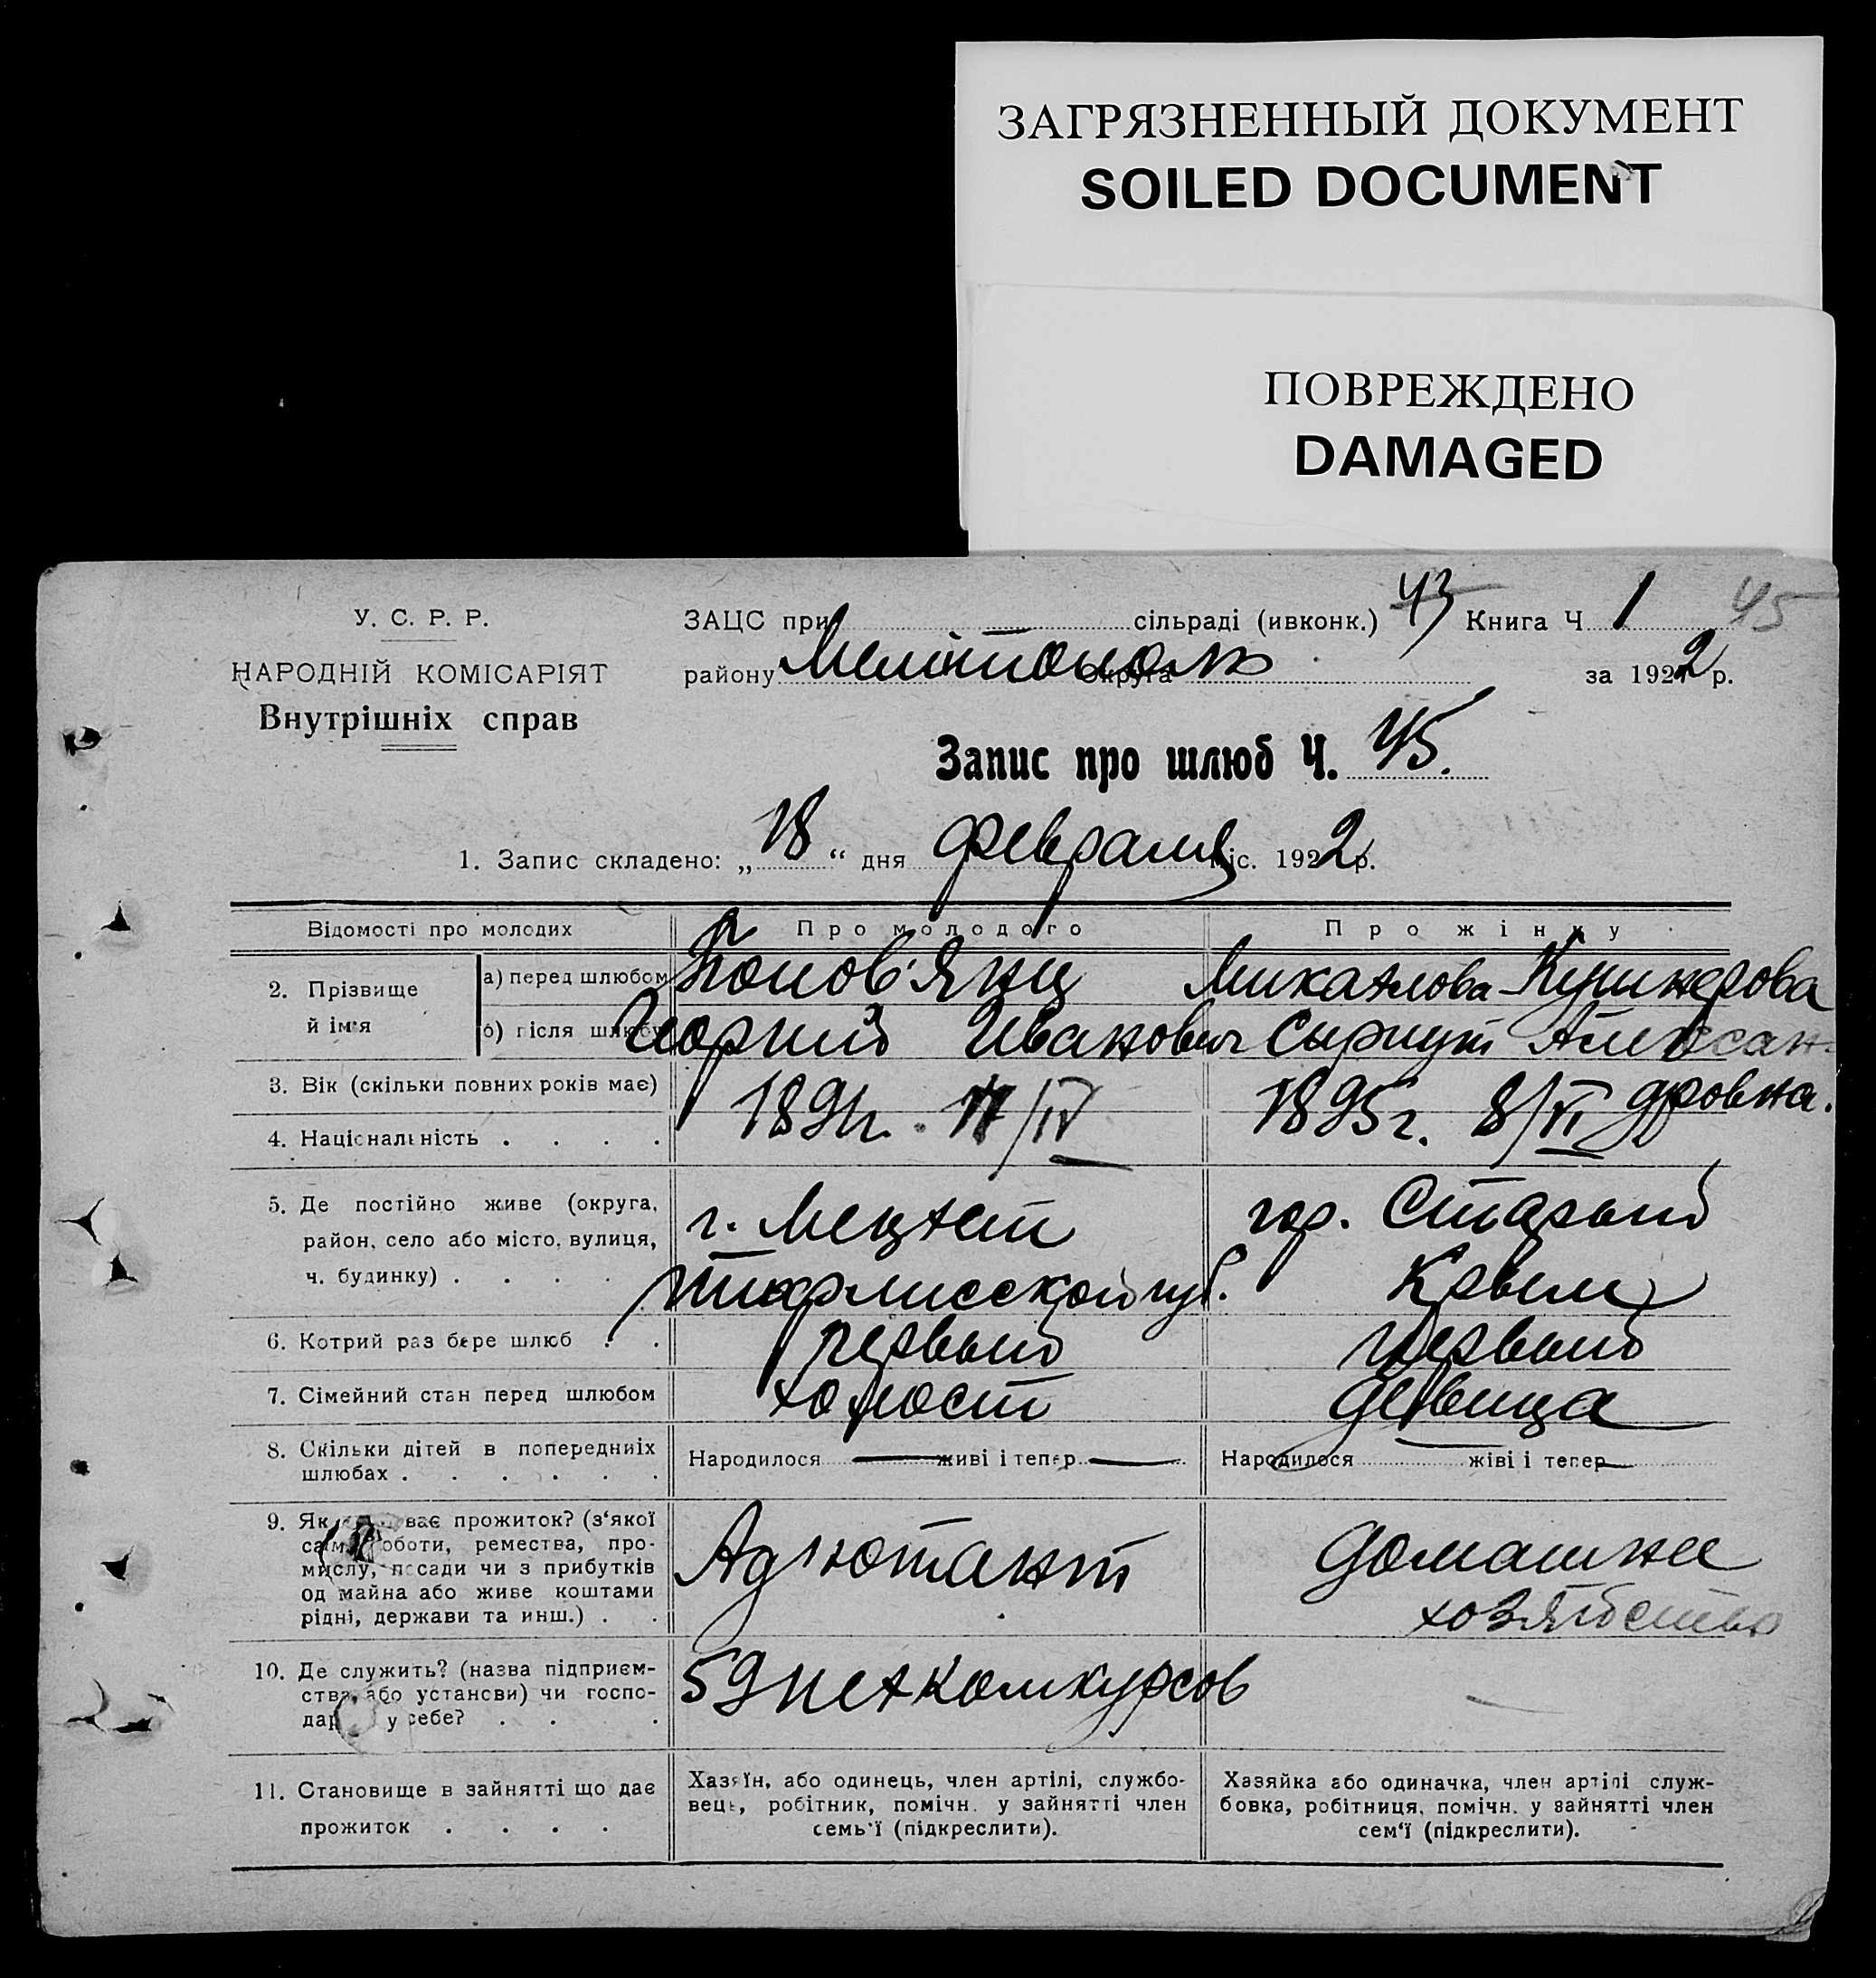 ЗАГРЯЗНЕННЫЙ ДОКУМЕНТ
SOILED DOCUMENT
ПОВРЕЖДЕНО
DAMAGED
У. С. Р. Р.
НАРОДНІЙ КОМІСАРІЯТ
Внутрішніх справ
ЗАЦС при сільраді (ивконк.) 43 Книга Ч 1 45
району Мелітополь Округа за 1922 р.
Запис про шлюб Ч. 45.
1. Запис складено: „18“ дня февраля міс. 1922 р.
Відомості про молодих Про молодого Про жінку
2. Прізвище й ім'я
а) перед шлюбом Попов'янц Микаэлова-Кушнерова
б) після шлюбу Георгий Иванович Сиригут Алексан-
дровна.
3. Вік (скільки повних років має)
4. Національність . . . .
1894г. 17/IV 1895г. 8/VI
5. Де постійно живе (округа, район, село або місто, вулиця, ч. будинку) . . . .
г. Мецхет гор. Старый
Тифлисской губ. Крым
6. Котрий раз бере шлюб . . первый первый
7. Сімейний стан перед шлюбом холост девица
8. Скільки дітей в попередніх
шлюбах . . . . . .
Народилося — живі і тепер — Народилося — жіві і тепер —
9. Як ває прожиток? (з'якої
сам роботи, ремества, про-
мислу, посади чи з прибутків
од майна або живе коштами
рідні, держави та инш.) . .
Ад'ютант домашнее
хозяйство
10. Де служить? (назва підприєм-
ства, або установи) чи госпо-
дар у себе? . . .
59 пехкомкурсов
11. Становище в зайнятті що дає
прожиток . . . .
Хазяїн, або одинець, член артілі, службо-
вець, робітник, помічн. у зайнятті член
семь'ї (підкреслити).
Хазяйка або одиначка, член артілі служ-
бовка, робітниця, помічн. у зайнятті член
сем'ї (підкреслити).